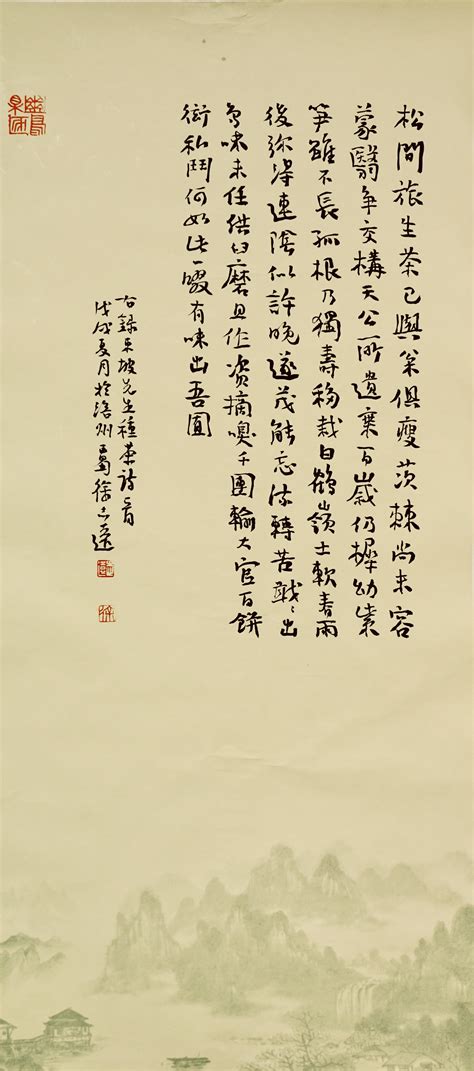 松間旅生茶已與松俱瘦茨棘尚未容
蒙翳争交構天公所遺棄百歲仍穉幼紫
笋雖不長孤根乃獨壽移栽白鶴嶺土軟春雨
後弥得連陰似許晚遂茂能忘流轉苦戢〻出
鳥味未任供臼磨且作資摘嗅千團輸大官百餅
衒私鬥何如此一啜有味出吾囿
右錄東坡先生種茶詩一首
戊戌夏月於涪州蜀徐